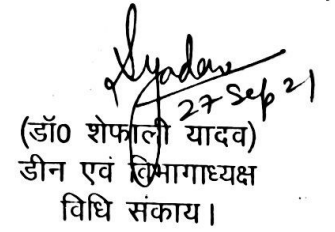 Syadav
27 Sep 21
(डॉ0 शेफाली यादव)
डीन एवं विभागाध्यक्ष
विधि संकाय।